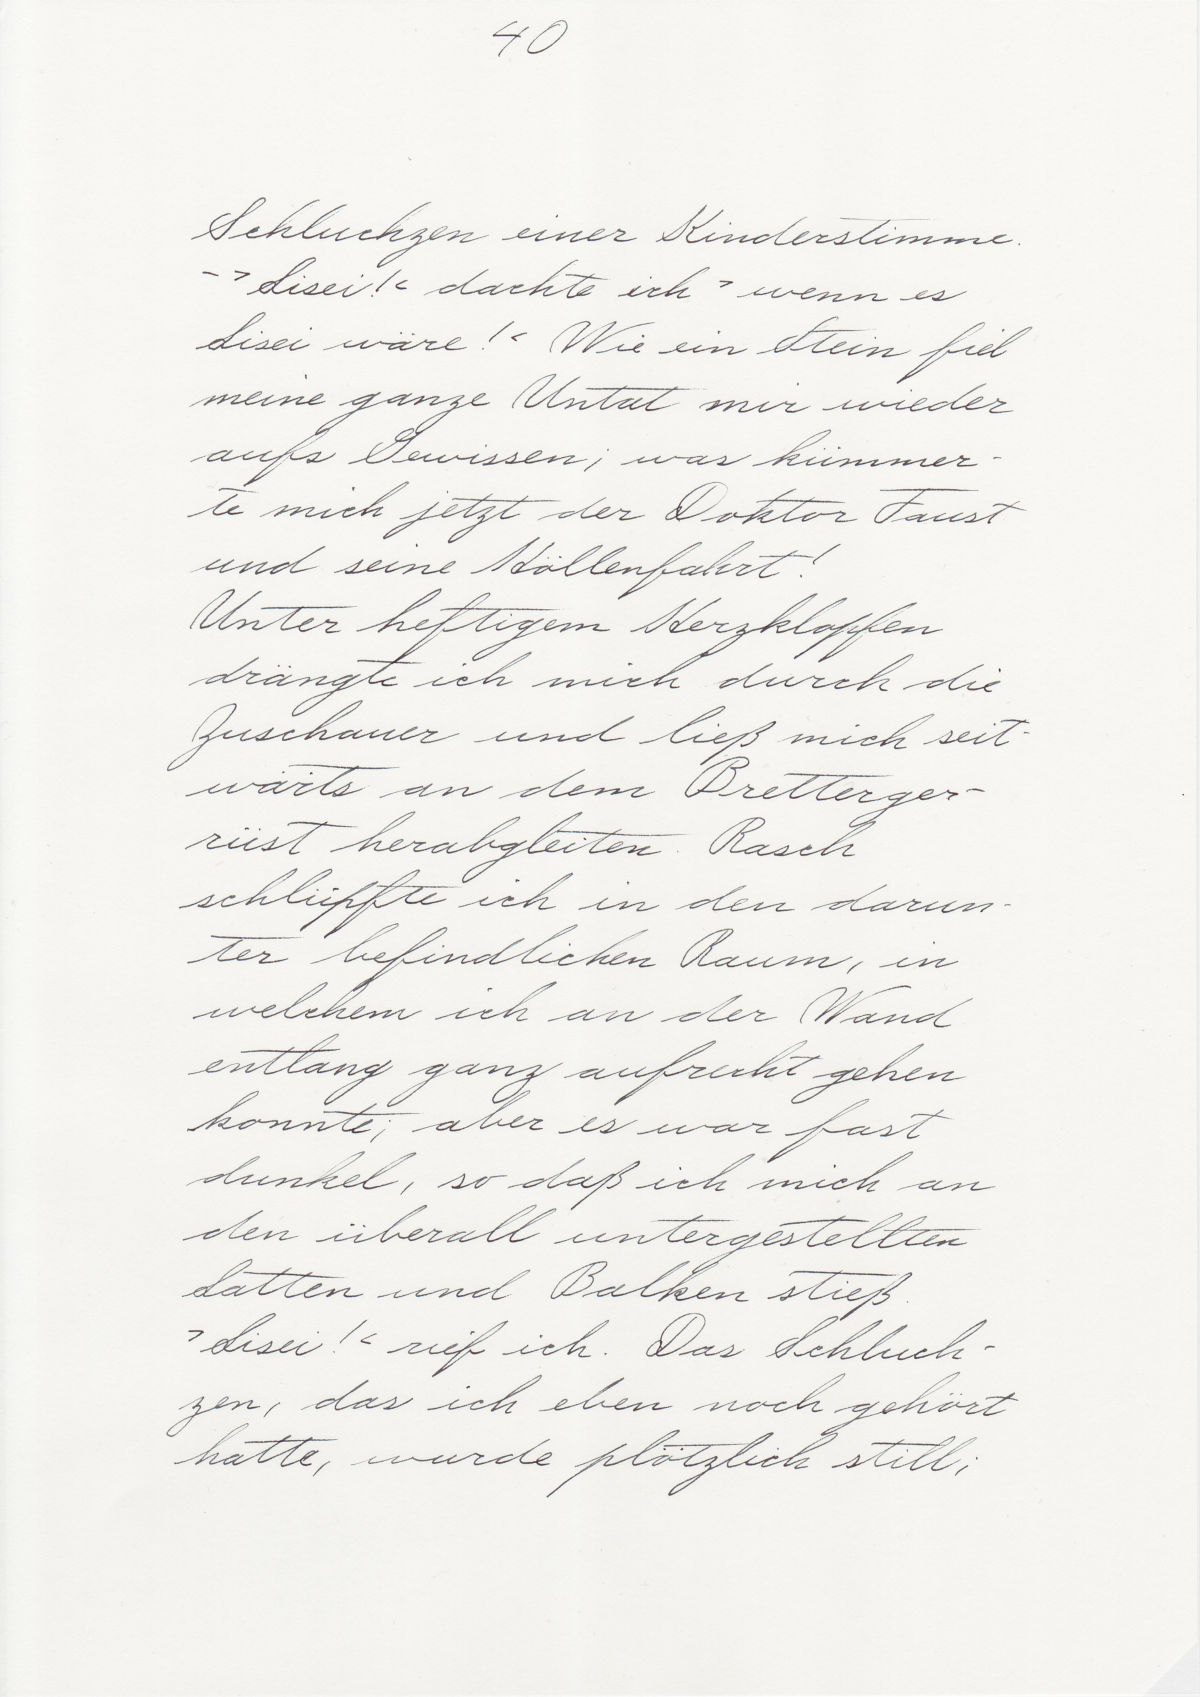 40
Schluchzen einer Kinderstimme.
– ›Lisei!‹ dachte ich › wenn es
Lisei wäre!‹ Wie ein Stein fiel
meine ganze Untat mir wieder
aufs Gewissen; was kümmer-
te mich jetzt der Doktor Faust
und seine Höllenfahrt!
Unter heftigem Herzklopfen
drängte ich mich durch die
Zuschauer und ließ mich seit-
wärts an dem Bretterger-
rüst herabgleiten. Rasch
schlüpfte ich in den darun-
ter befindlichen Raum, in
welchem ich an der Wand
entlang ganz aufrecht gehen
konnte; aber es war fast
dunkel, so daß ich mich an
den überall untergestellten
Latten und Balken stieß.
›Lisei!‹ rief ich. Das Schluch-
zen, das ich eben noch gehört
hatte, wurde plötzlich still;